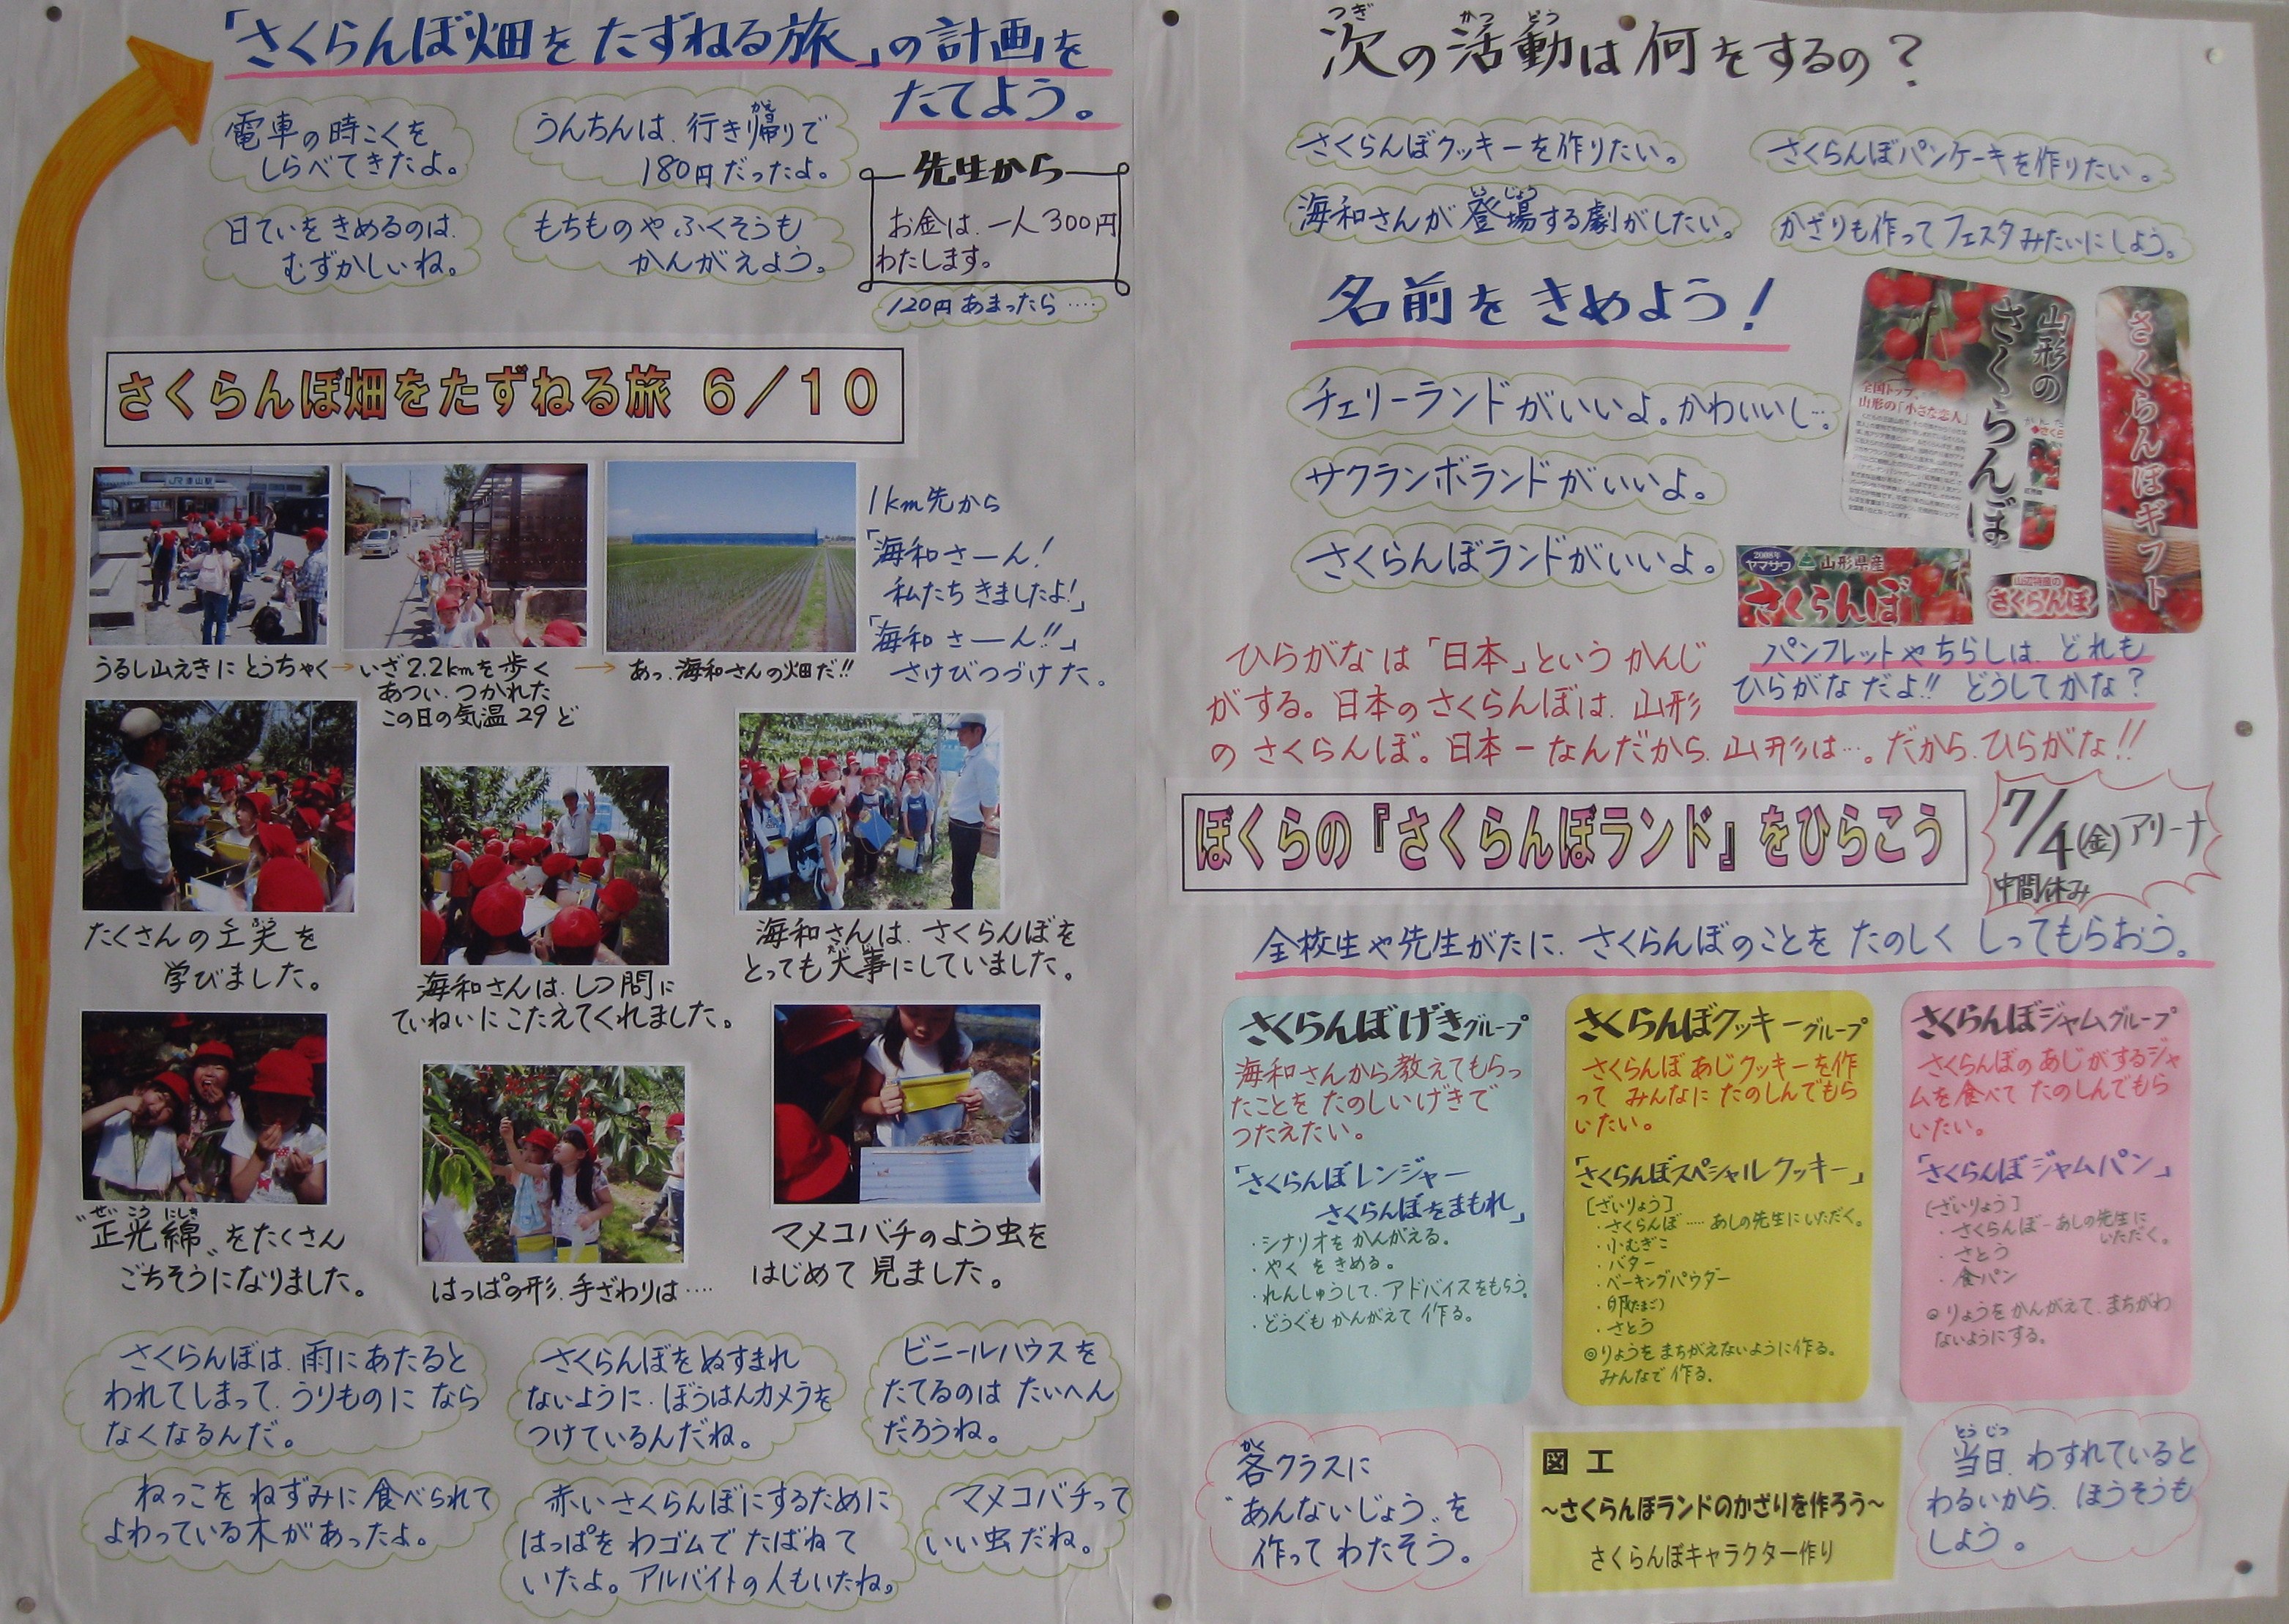 「さくらんぼ畑をたずねる旅」の計画を
たてよう。
電車の時こくを
しらべてきたよ。
うんちんは、行き帰りで
180円だったよ。
日ていをきめるのは、
むずかしいね。
もちものやふくそうも
かんがえよう。
先生から
お金は、一人300円
わたします。
120円あまったら‥‥
さくらんぼ畑をたずねる旅 6／10
JR漆山駅
1km先から
「海和さーん！
私たちきましたよ！」
「海和さーん!!」
さけびつづけた。
うるし山えきにとうちゃく→
いざ2.2kmを歩く→
あつい、つかれた
この日の気温29ど
あっ、海和さんの畑だ!!
たくさんの工夫を
学びました。
海和さんは、しつ問に
ていねいにこたえてくれました。
海和さんは、さくらんぼを
とっても大事にしていました。
"正光綿"をたくさん
ごちそうになりました。
はっぱの形、手ざわりは‥‥
マメコバチのよう虫を
はじめて見ました。
さくらんぼは、雨にあたると
われてしまって、うりものになら
なくなるんだ。
さくらんぼをぬすまれ
ないように、ぼうはんカメラを
つけているんだね。
ビニールハウスを
たてるのはたいへん
だろうね。
ねっこをねずみに食べられて
よわっている木があったよ。
赤いさくらんぼにするために
はっぱをわゴムでたばねて
いたよ。アルバイトの人もいたね。
マメコバチって
いい虫だね。
次の活動は何をするの？
さくらんぼクッキーを作りたい。
さくらんぼパンケーキを作りたい。
海和さんが登場する劇がしたい。
かざりも作ってフェスタみたいにしよう。
名前をきめよう！
チェリーランドがいいよ。かわいいし…。
サクランボランドがいいよ。
さくらんぼランドがいいよ。
山形の
さくらんぼ
全国トップ、
山形の「小さな恋人」
さくらんぼギフト
2008年
ヤマサワ
山形県産
さくらんぼ
さくらんぼ
パンフレットやちらしは、どれも
ひらがなだよ!!どうしてかな？
ひらがなは「日本」というかんじ
がする。日本のさくらんぼは、山形
のさくらんぼ。日本一なんだから、山形は…。だから、ひらがな!!
ぼくらの『さくらんぼランド』をひらこう
7/4(金)アリーナ
中間休み
全校生や先生がたに、さくらんぼのことをたのしくしってもらおう。
さくらんぼげきグループ
海和さんから教えてもらっ
たことをたのしいげきで
つたえたい。
「さくらんぼレンジャー
さくらんぼをまもれ」
・シナリオをかんがえる。
・やくをきめる。
・れんしゅうして、アドバイスをもらう。
・どうぐもかんがえて作る。
さくらんぼクッキーグループ
さくらんぼあじクッキーを作
ってみんなにたのしんでもら
いたい。
「さくらんぼスペシャルクッキー」
[ざいりょう]
・さくらんぼ‥‥あしの先生にいただく。
・小むぎこ
・バター
・ベーキングパウダー
・卵(たまご)
・さとう
◎りょうをまちがえないように作る。
みんなで作る。
さくらんぼジャムグループ
さくらんぼのあじがするジャ
ムを食べてたのしんでもら
いたい。
「さくらんぼジャムパン」
[ざいりょう]
・さくらんぼ－あしの先生に
いただく。
・さとう
・食パン
◎りょうをかんがえて、まちがわ
ないようにする。
各クラスに
"あんないじょう"を
作ってわたそう。
図 工
～さくらんぼランドのかざりを作ろう～
さくらんぼキャラクター作り
当日、わすれていると
わるいから、ほうそうも
しよう。